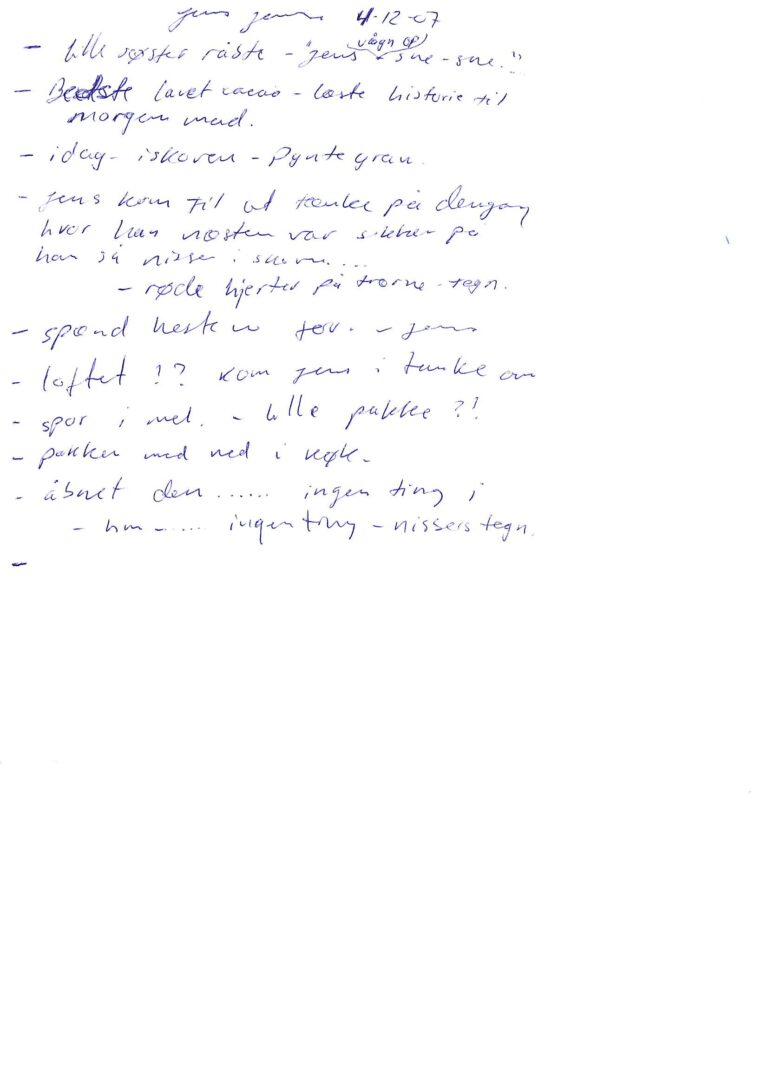 Jens Jens 4-12-07
- lille søster råbte - "Jens vågn op sne - sne."
- Bedste lavet cacao - læste historie til
morgen mad.
- idag - i skoven - Pynte gran.
- Jens kom til at tænke på dengang
hvor han næsten var sikker på
han så nisser i skoven....
- røde hjerter på træerne - tegn.
- spænd hesten for. - Jens
- loftet !? kom Jens i tanke om
- spor i mel. - lille pakke ?!
- pakken med ned i køk-
- åbnet den ...... ingen ting i
- hm - ..... ingenting - nissers tegn.
-